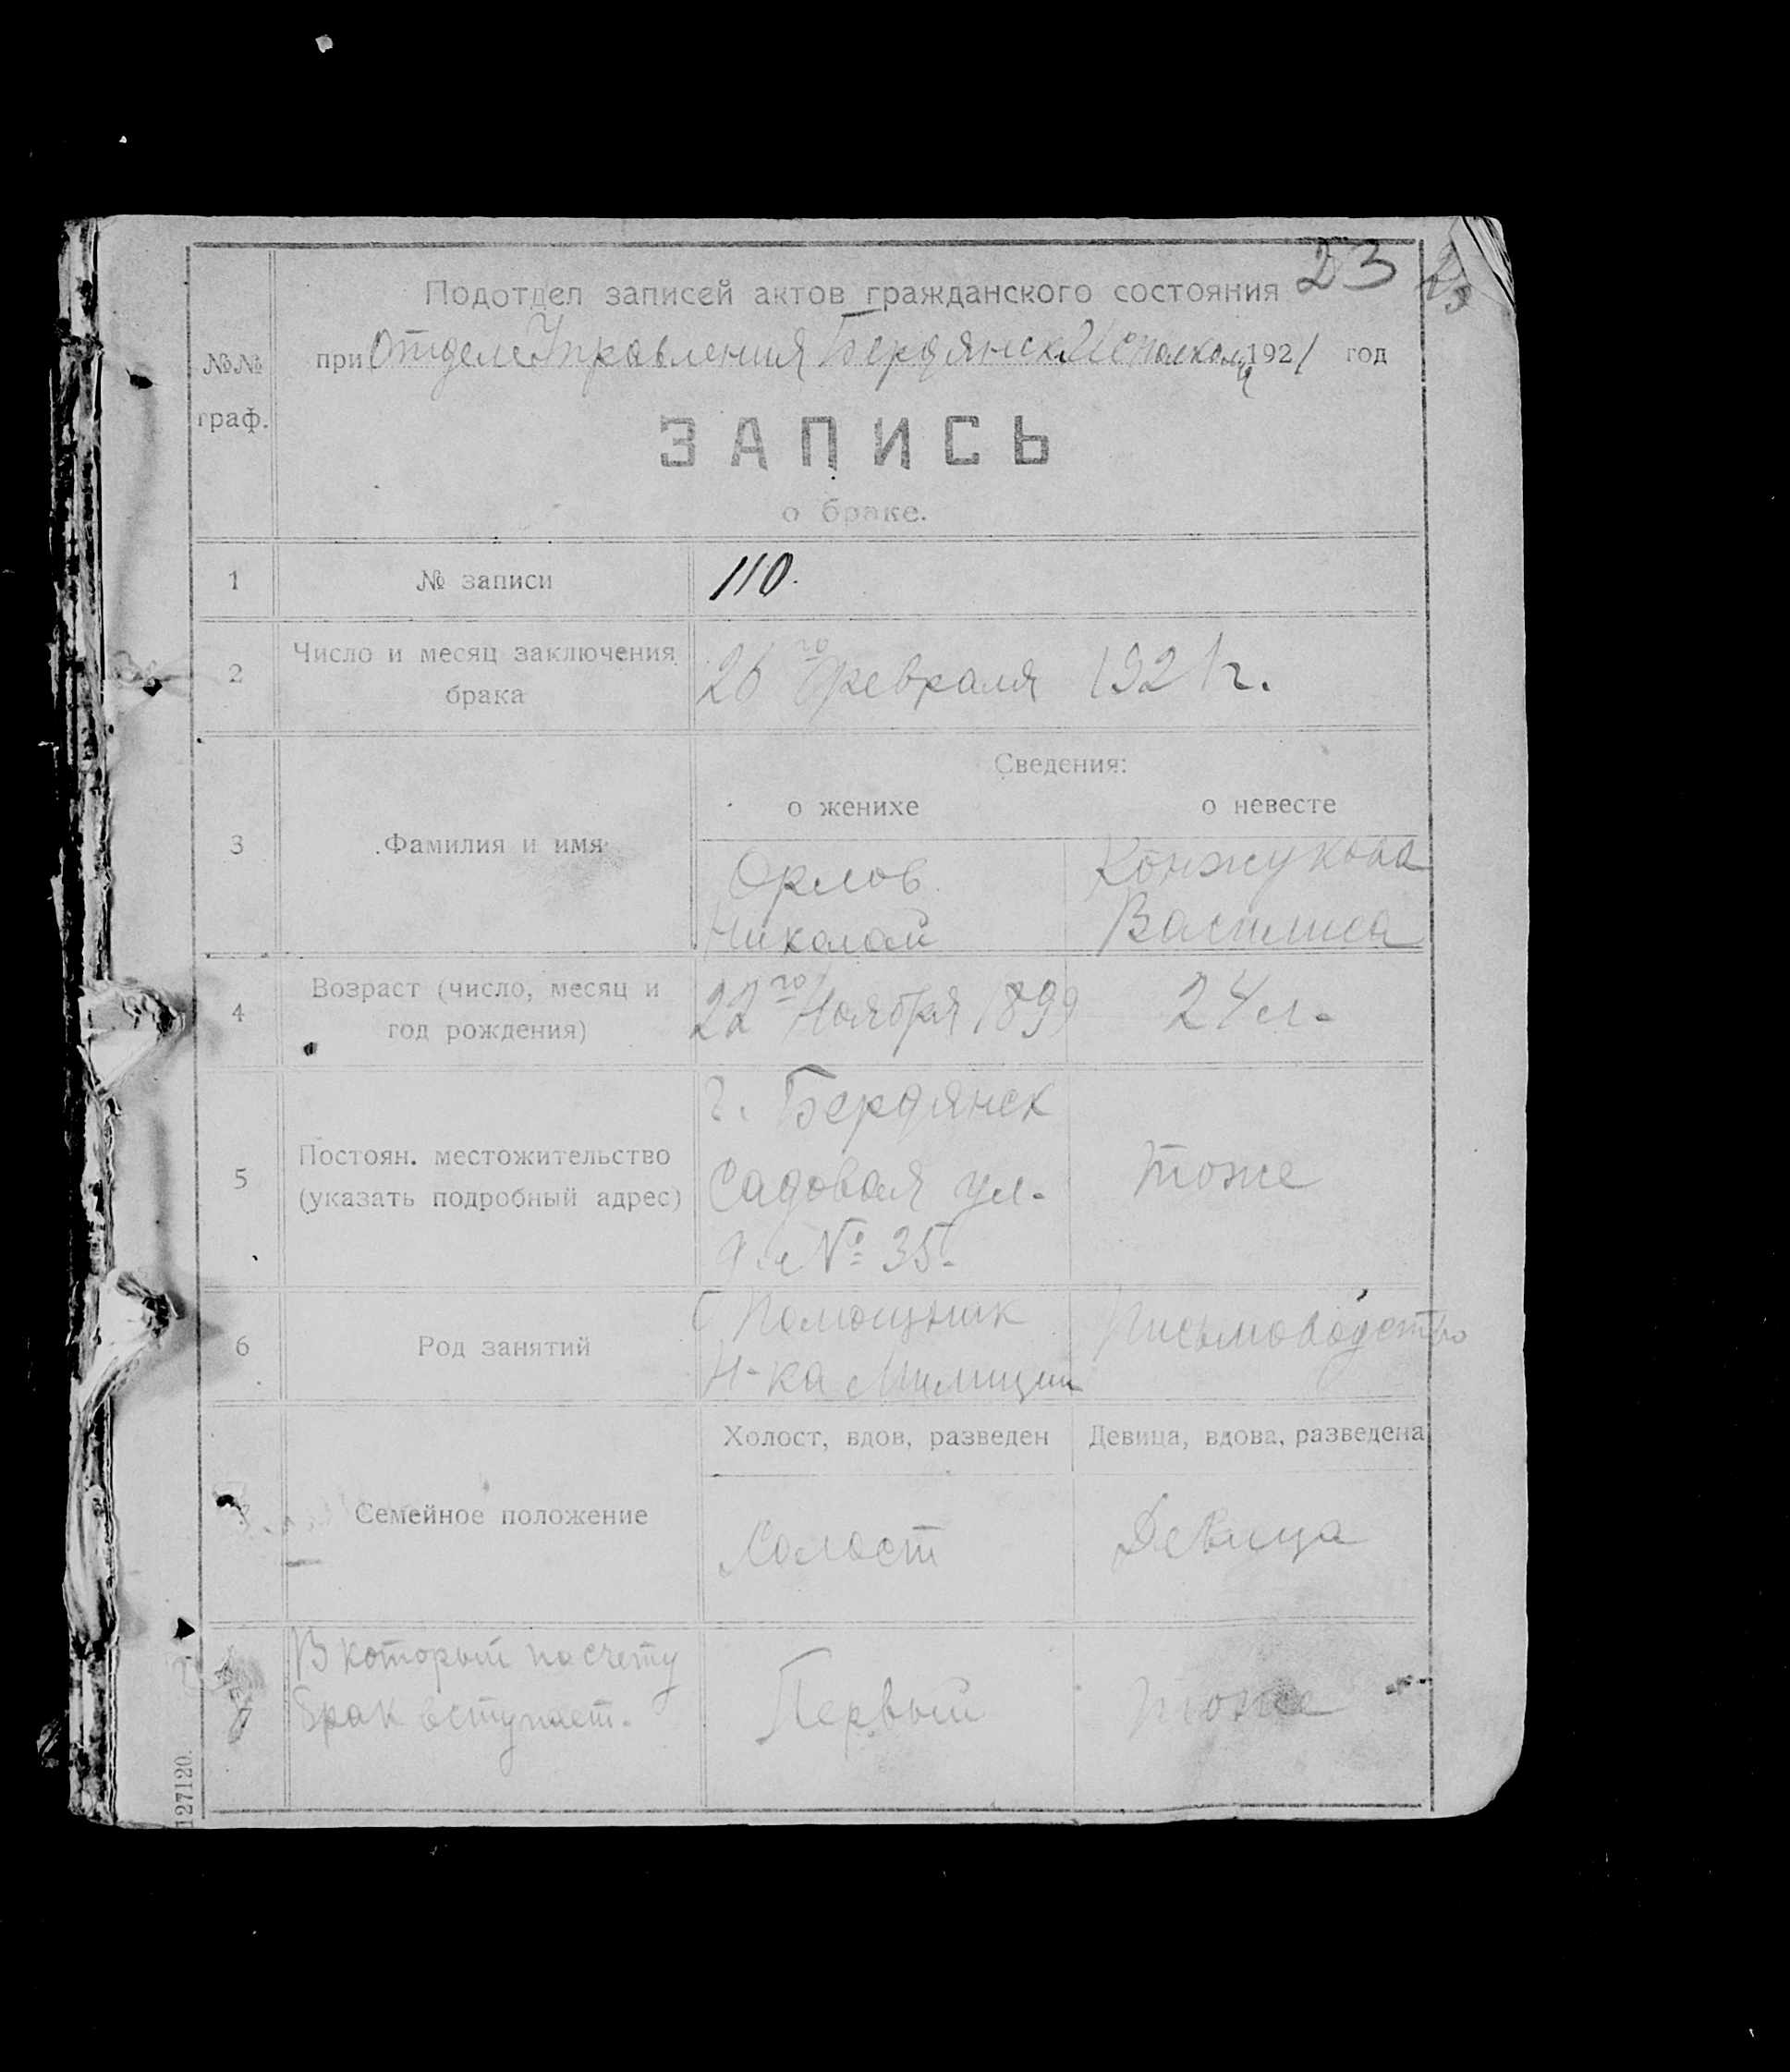 23
Подотдел записей актов гражданского состояния
при Отделе Управления Бердянск. Исполкома 1921 год
№№
граф.
ЗАПИСЬ
о браке.
1 № записи 110.
2 Число и месяц заключения брака 26го февраля 1921 г.
Сведения:
о женихе о невесте
3 Фамилия и имя
Орлов Конжукова
Николай Василиса
4 Возраст (число, месяц и
год рождения)
22го Ноября 1899 24 л.
5 Постоян. местожительство
(указать подробный адрес)
г. Бердянск
Садовая ул.
д. № 35.
тоже
6 Род занятий
Помощник
Н-ка Милиции
Письмоводство
Холост, вдов, разведен Девица, вдова, разведена
7 Семейное положение
Холост Девица
В который по счету
брак вступает.
Первый тоже
127120.